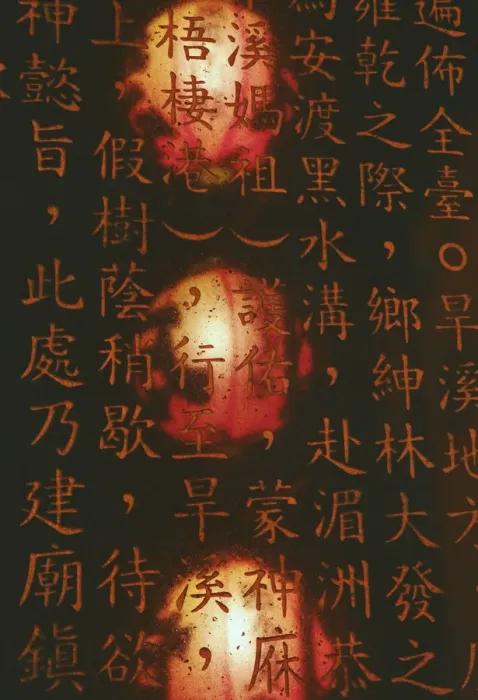 遍佈全臺。旱溪地
雍乾之際，鄉紳林大發之
為安渡黑水溝，赴湄洲恭
溪媽祖）護佑，蒙神庥
梧棲港），行至旱溪，
上，假樹蔭稍歇，待欲
神懿旨，此處乃建廟鎮